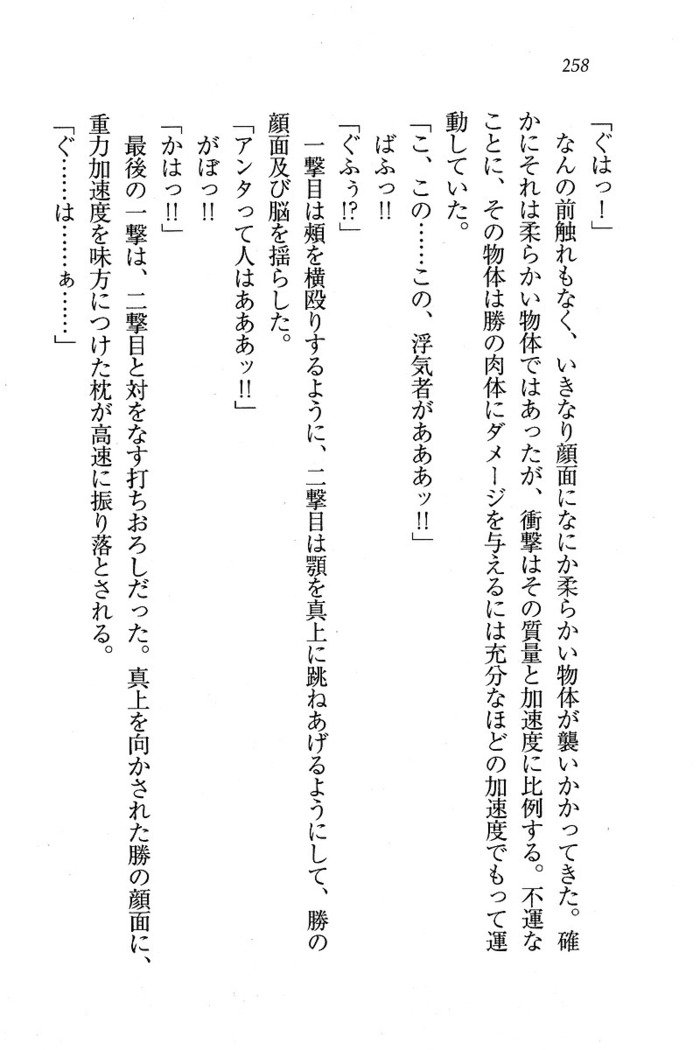 258
「ぐはっ！」
なんの前触れもなく、いきなり顔面になにか柔らかい物体が襲いかかってきた。確
かにそれは柔らかい物体ではあったが、衝撃はその質量と加速度に比例する。不運な
ことに、その物体は勝の肉体にダメージを与えるには充分なほどの加速度でもって運
動していた。
「こ、この……この、浮気者がああぁッ!!」
ばふっ!!
「ぐふぅ!?」
一撃目は頰を横殴りするように、二撃目は顎を真上に跳ねあげるようにして、勝の
顔面及び脳を揺らした。
「アンタって人はあああッ!!」
がぼっ!!
「かはっ!!」
最後の一撃は、二撃目と対をなす打ちおろしだった。真上を向かされた勝の顔面に、
重力加速度を味方につけた枕が高速に振り落とされる。
「ぐ……は……ぁ……」